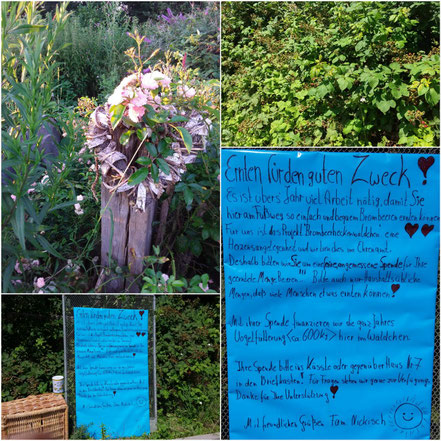 Ernten für den guten Zweck!
Es ist übers Jahr viel Arbeit nötig, damit Sie
hier am Fußweg so einfach und bequem Brombeeren ernten können
Für uns ist das Projekt "Brombeerheckenwäldchen" eine
Herzensangelegenheit und wir machen im Ehrenamt.
Deshalb bitten wir Sie um eine faire angemessene Spende für Ihre
geerntete Menge Beeren!!! Bitte auch nur haushaltsübliche
Mengen, daß viele Menschen etwas ernten können!
Mit ihrer Spende finanzieren wir die ganzjahres
Vogelfütterung (ca. 600 kg) hier im Wäldchen
Ihre Spende bitte ins Kässle oder gegenüber Haus Nr. 7
in den Briefkasten! Für Fragen stehen wir gerne zur Verfügung.
Danke für Ihre Unterstützung!
Mit freundlichen Grüßen Fam. Mickisch